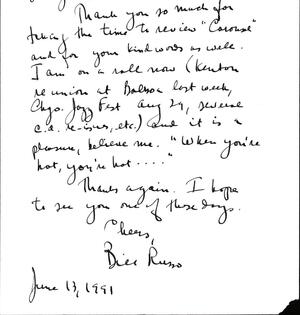 Thank you so much for
taking the time to review "Carousel"
and for your kind words as well.
I am on a roll now (Kenton
reunion at Balboa last week,
Chgo. Jazz Fest Aug 29, several
c.d. re-issues, etc.) and it is a
pleasure, believe me. "When you're
hot, you're hot...."
Thanks again. I hope
to see you one of these days.
Cheers,
Bill Russo
June 13, 1991